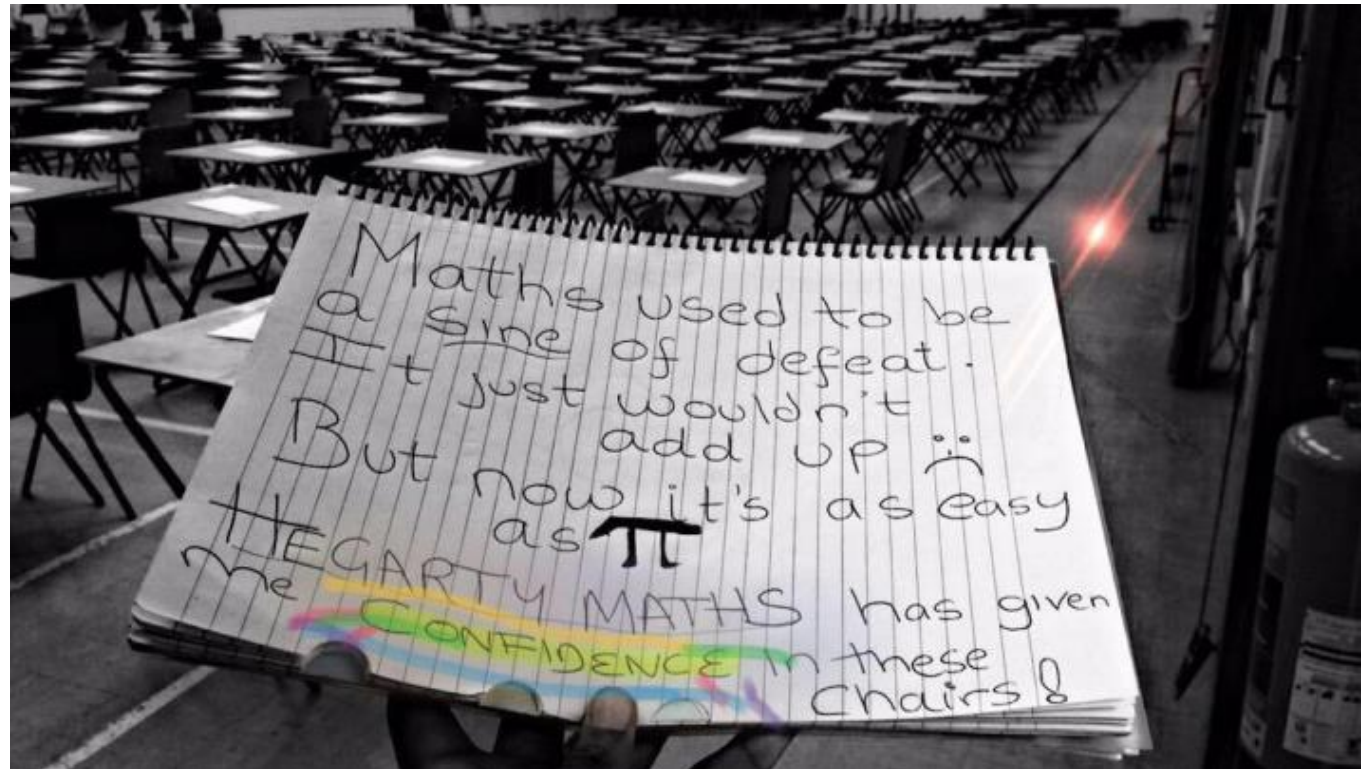 Maths used to be
a sine of defeat.
It just wouldn't
add up :(
But now it's as easy
as π
HEGARTY MATHS has given
me CONFIDENCE in these
Chairs!